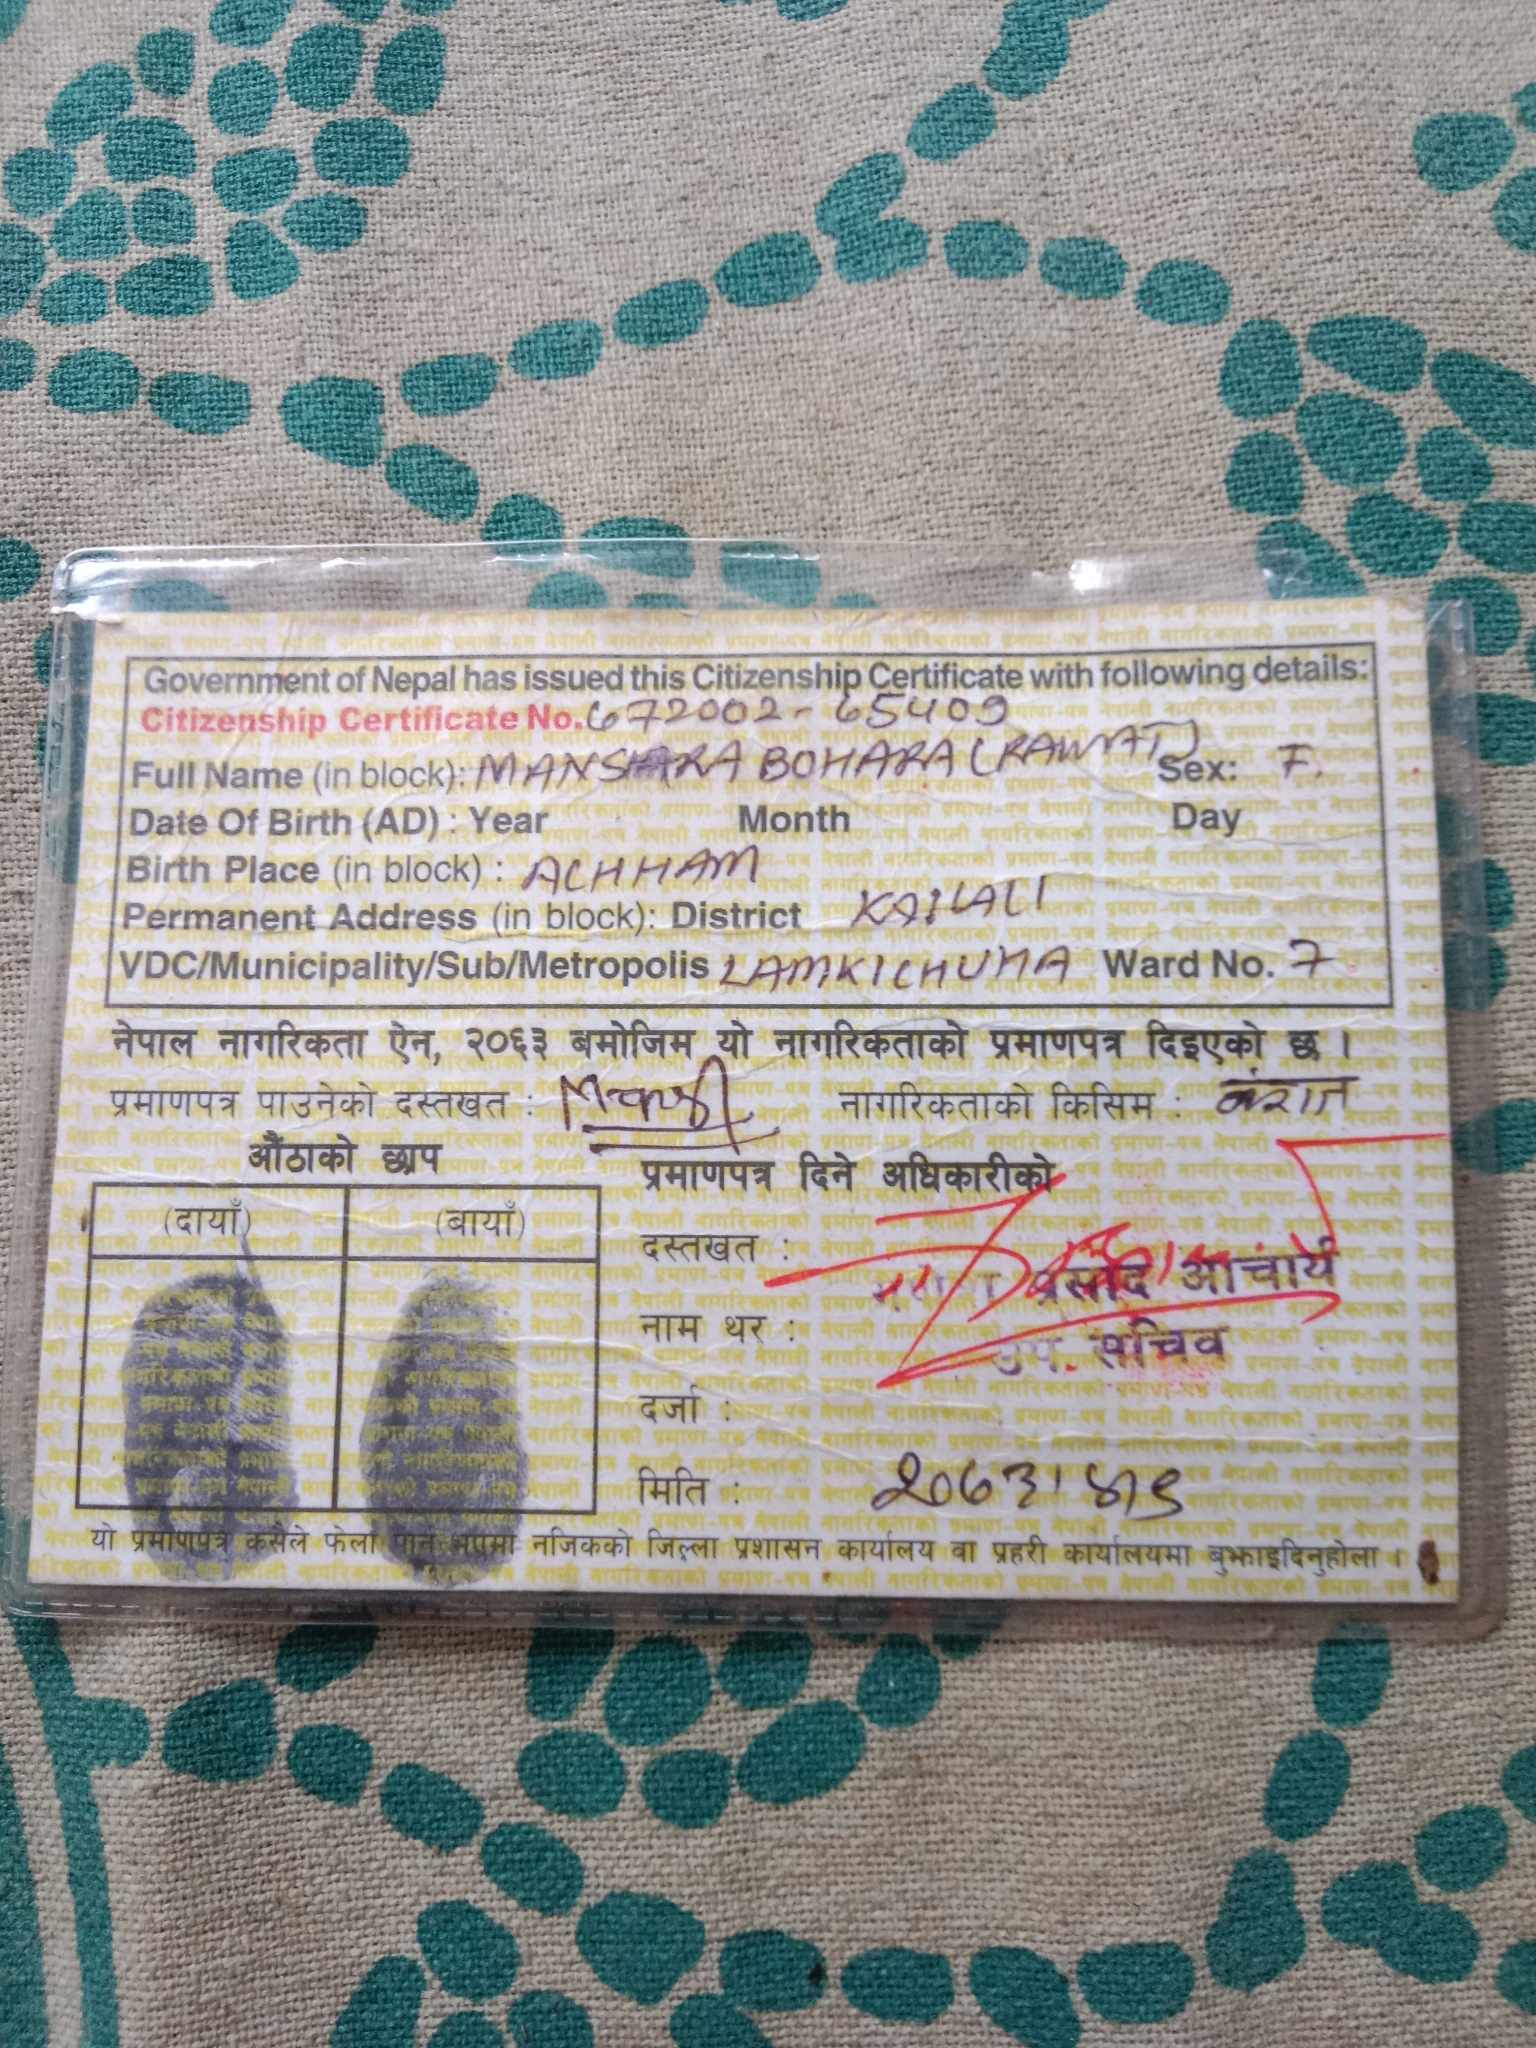 Government of Nepal has issued this Citizenship Certificate with following details:
Citizenship Certificate No. 672002-65409
Full Name (in block): MANSHARA BOHARA (RAWAT) Sex: F.
Date Of Birth (AD) : Year Month Day
Birth Place (in block) : ACHHAM
Permanent Address (in block): District KAILALI
VDC/Municipality/Sub/Metropolis LAMKICHUHA Ward No. 7
नेपाल नागरिकता ऐन, २०६३ बमोजिम यो नागरिकताको प्रमाणपत्र दिइएको छ ।
प्रमाणपत्र पाउनेको दस्तखत : नागरिकताको किसिम : वंशज
औंठाको छाप
(दायाँ) (बायाँ)
प्रमाणपत्र दिने अधिकारीको
दस्तखत :
प्रसाद आचार्य
नाम थर :
उप. सचिव
दर्जा :
मिति : २०६३।
यो प्रमाणपत्र कसैले फेला पारे नजिकको जिल्ला प्रशासन कार्यालय वा प्रहरी कार्यालयमा बुझाइदिनुहोला ।